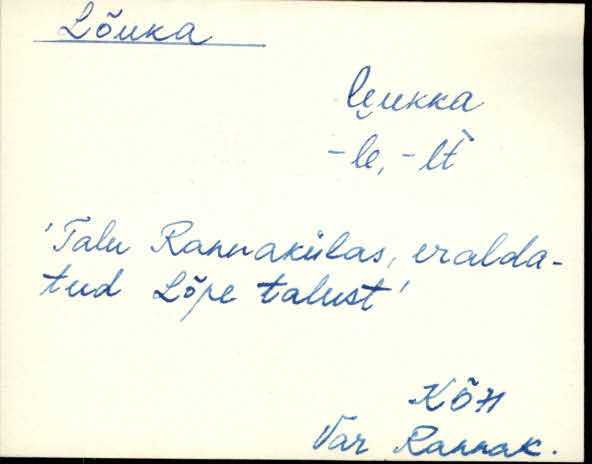 Lõuka
le̮ukka
-le, -lt̀
'Talu Rannakülas, eralda-
tud Lõpe talust'
KÕH
Var Rannak.